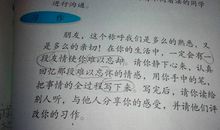 进行沟通。
习作
朋友,这个称呼我们是多么的熟悉,又
是多么的亲切!在你的生活中,一定会有一
段友情使你难以忘却。请你静下心来,认真
回忆那段难以忘怀的情感,用你手中的笔,
把事情的全过程写下来。写完后,请你读给
别人听,与他人分享你的感受,并请他们评
改你的习作。